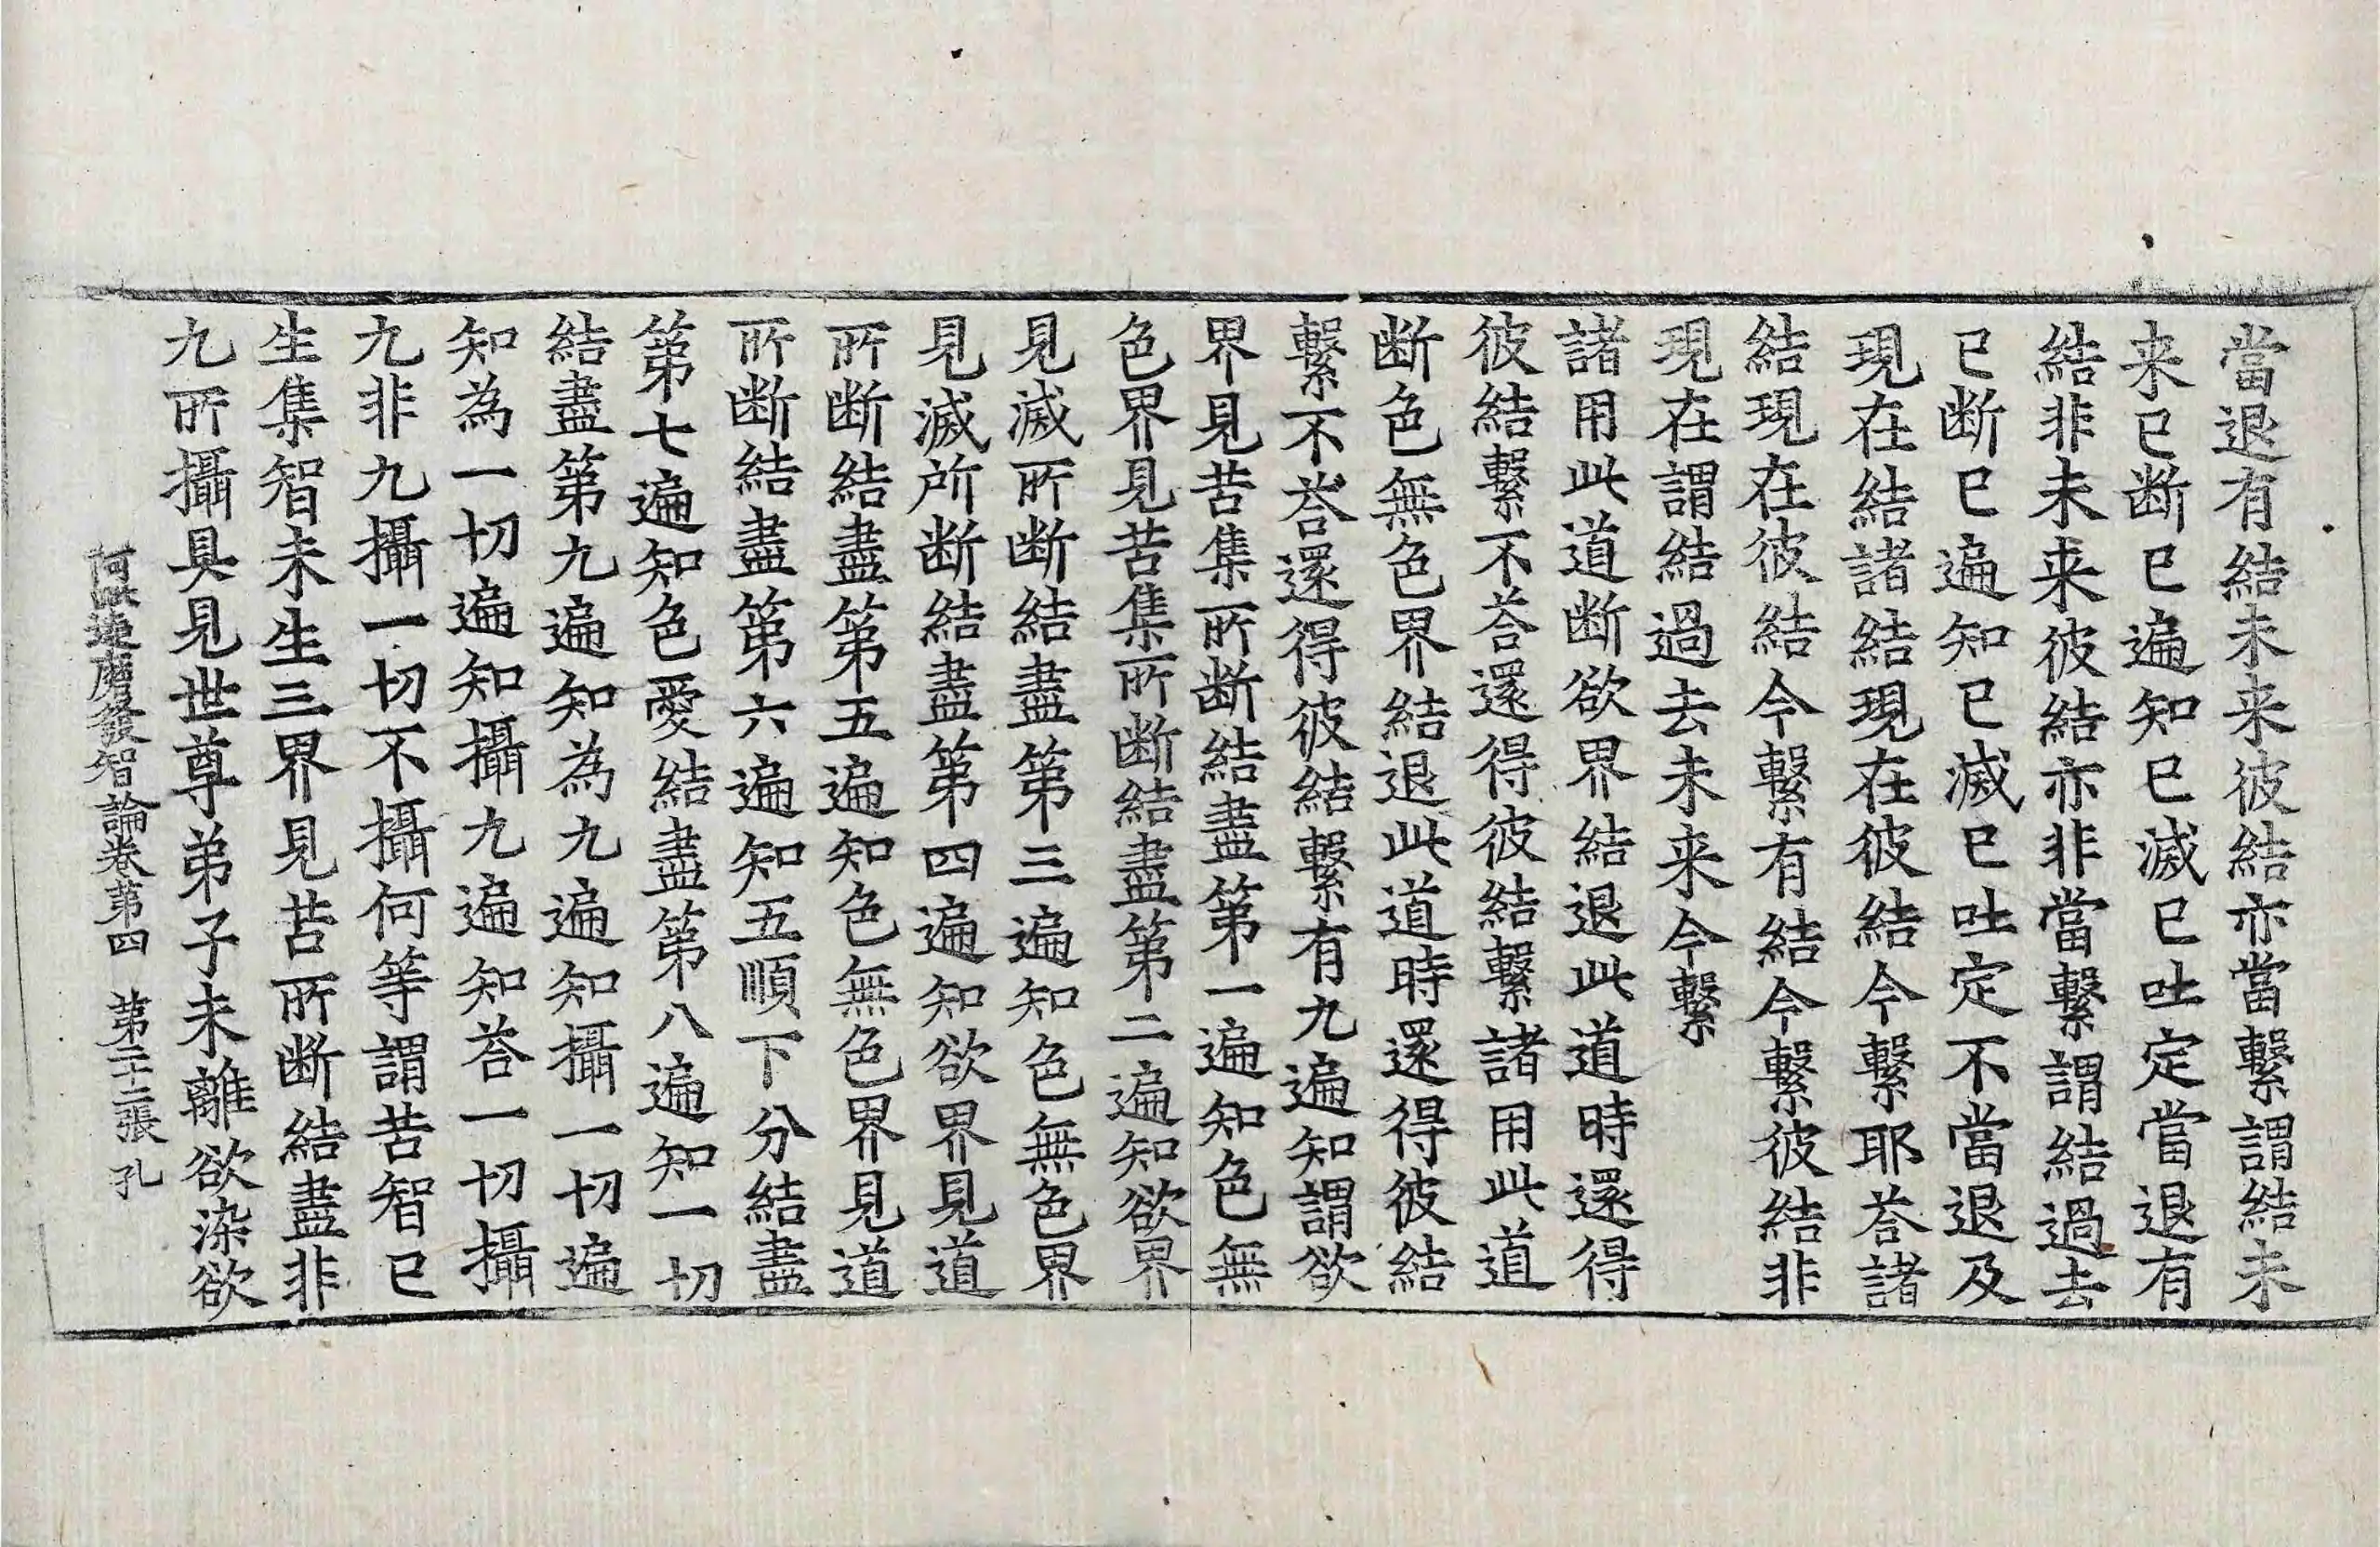 當退有結未来彼結亦當繫謂結未
来已断已遍知已滅已吐定當退有
結非未来彼結亦非當繫謂結過去
已断已遍知已滅已吐定不當退及
現在結諸結現在彼結今繫耶荅諸
結現在彼結今繫有結今繫彼結非
現在謂結過去未来今繫
諸用此道断欲界結退此道時還得
彼結繫不荅還得彼結繫諸用此道
断色無色界結退此道時還得彼結
繫不荅還得彼結繫有九遍知謂欲
界見苦集所断結盡第一遍知色無
色界見苦集所断結盡第二遍知欲界
見滅所断結盡第三遍知色無色界
見滅所断結盡第四遍知欲界見道
所断結盡第五遍知色無色界見道
所断結盡第六遍知五順下分結盡
第七遍知色愛結盡第八遍知一切
結盡第九遍知為九遍知攝一切遍
知為一切遍知攝九遍知荅一切攝
九非九攝一切不攝何等謂苦智已
生集智未生三界見苦所断結盡非
九所攝具見世尊弟子未離欲染欲
阿毗達磨發智論卷第四 第二十二張 孔